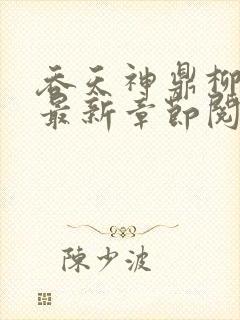 吞天神鼎柳
最新章節閱
陳少波